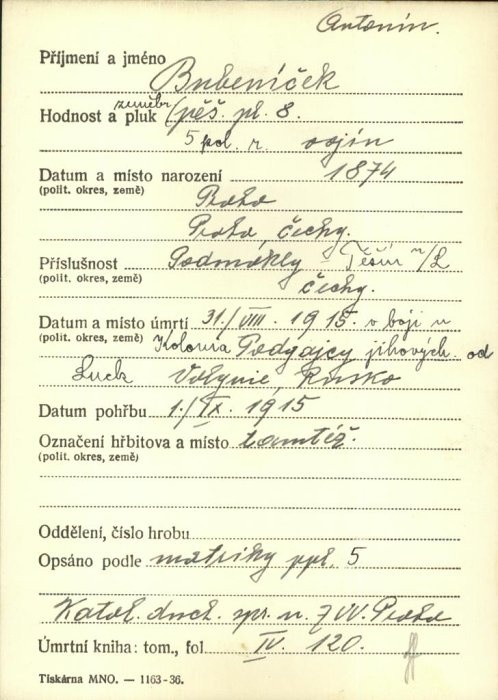 Antonín.
Příjmení a jméno Bubeníček
Hodnost a pluk zeměbr. (pěš. pl. 8.
5 pol. r. vojín
Datum a místo narození 1874
(polit. okres, země) Praha
Praha, Čechy.
Příslušnost Podmokly - Těšín n/L
(polit. okres, země) Čechy.
Datum a místo úmrtí 31./VIII. 1915. v boji u
(polit. okres, země) Podgajcy jihových. od
Luck Volynie, Rusko
Datum pohřbu 1./IX. 1915
Označení hřbitova a místo tamtéž.
(polit. okres, země)
Oddělení, číslo hrobu
Opsáno podle matriky ppl. 5
Katol. duch. spr. n. ZVV. Praha
Úmrtní kniha: tom., fol. IV. 120.
Tiskárna MNO. — 1163-36.